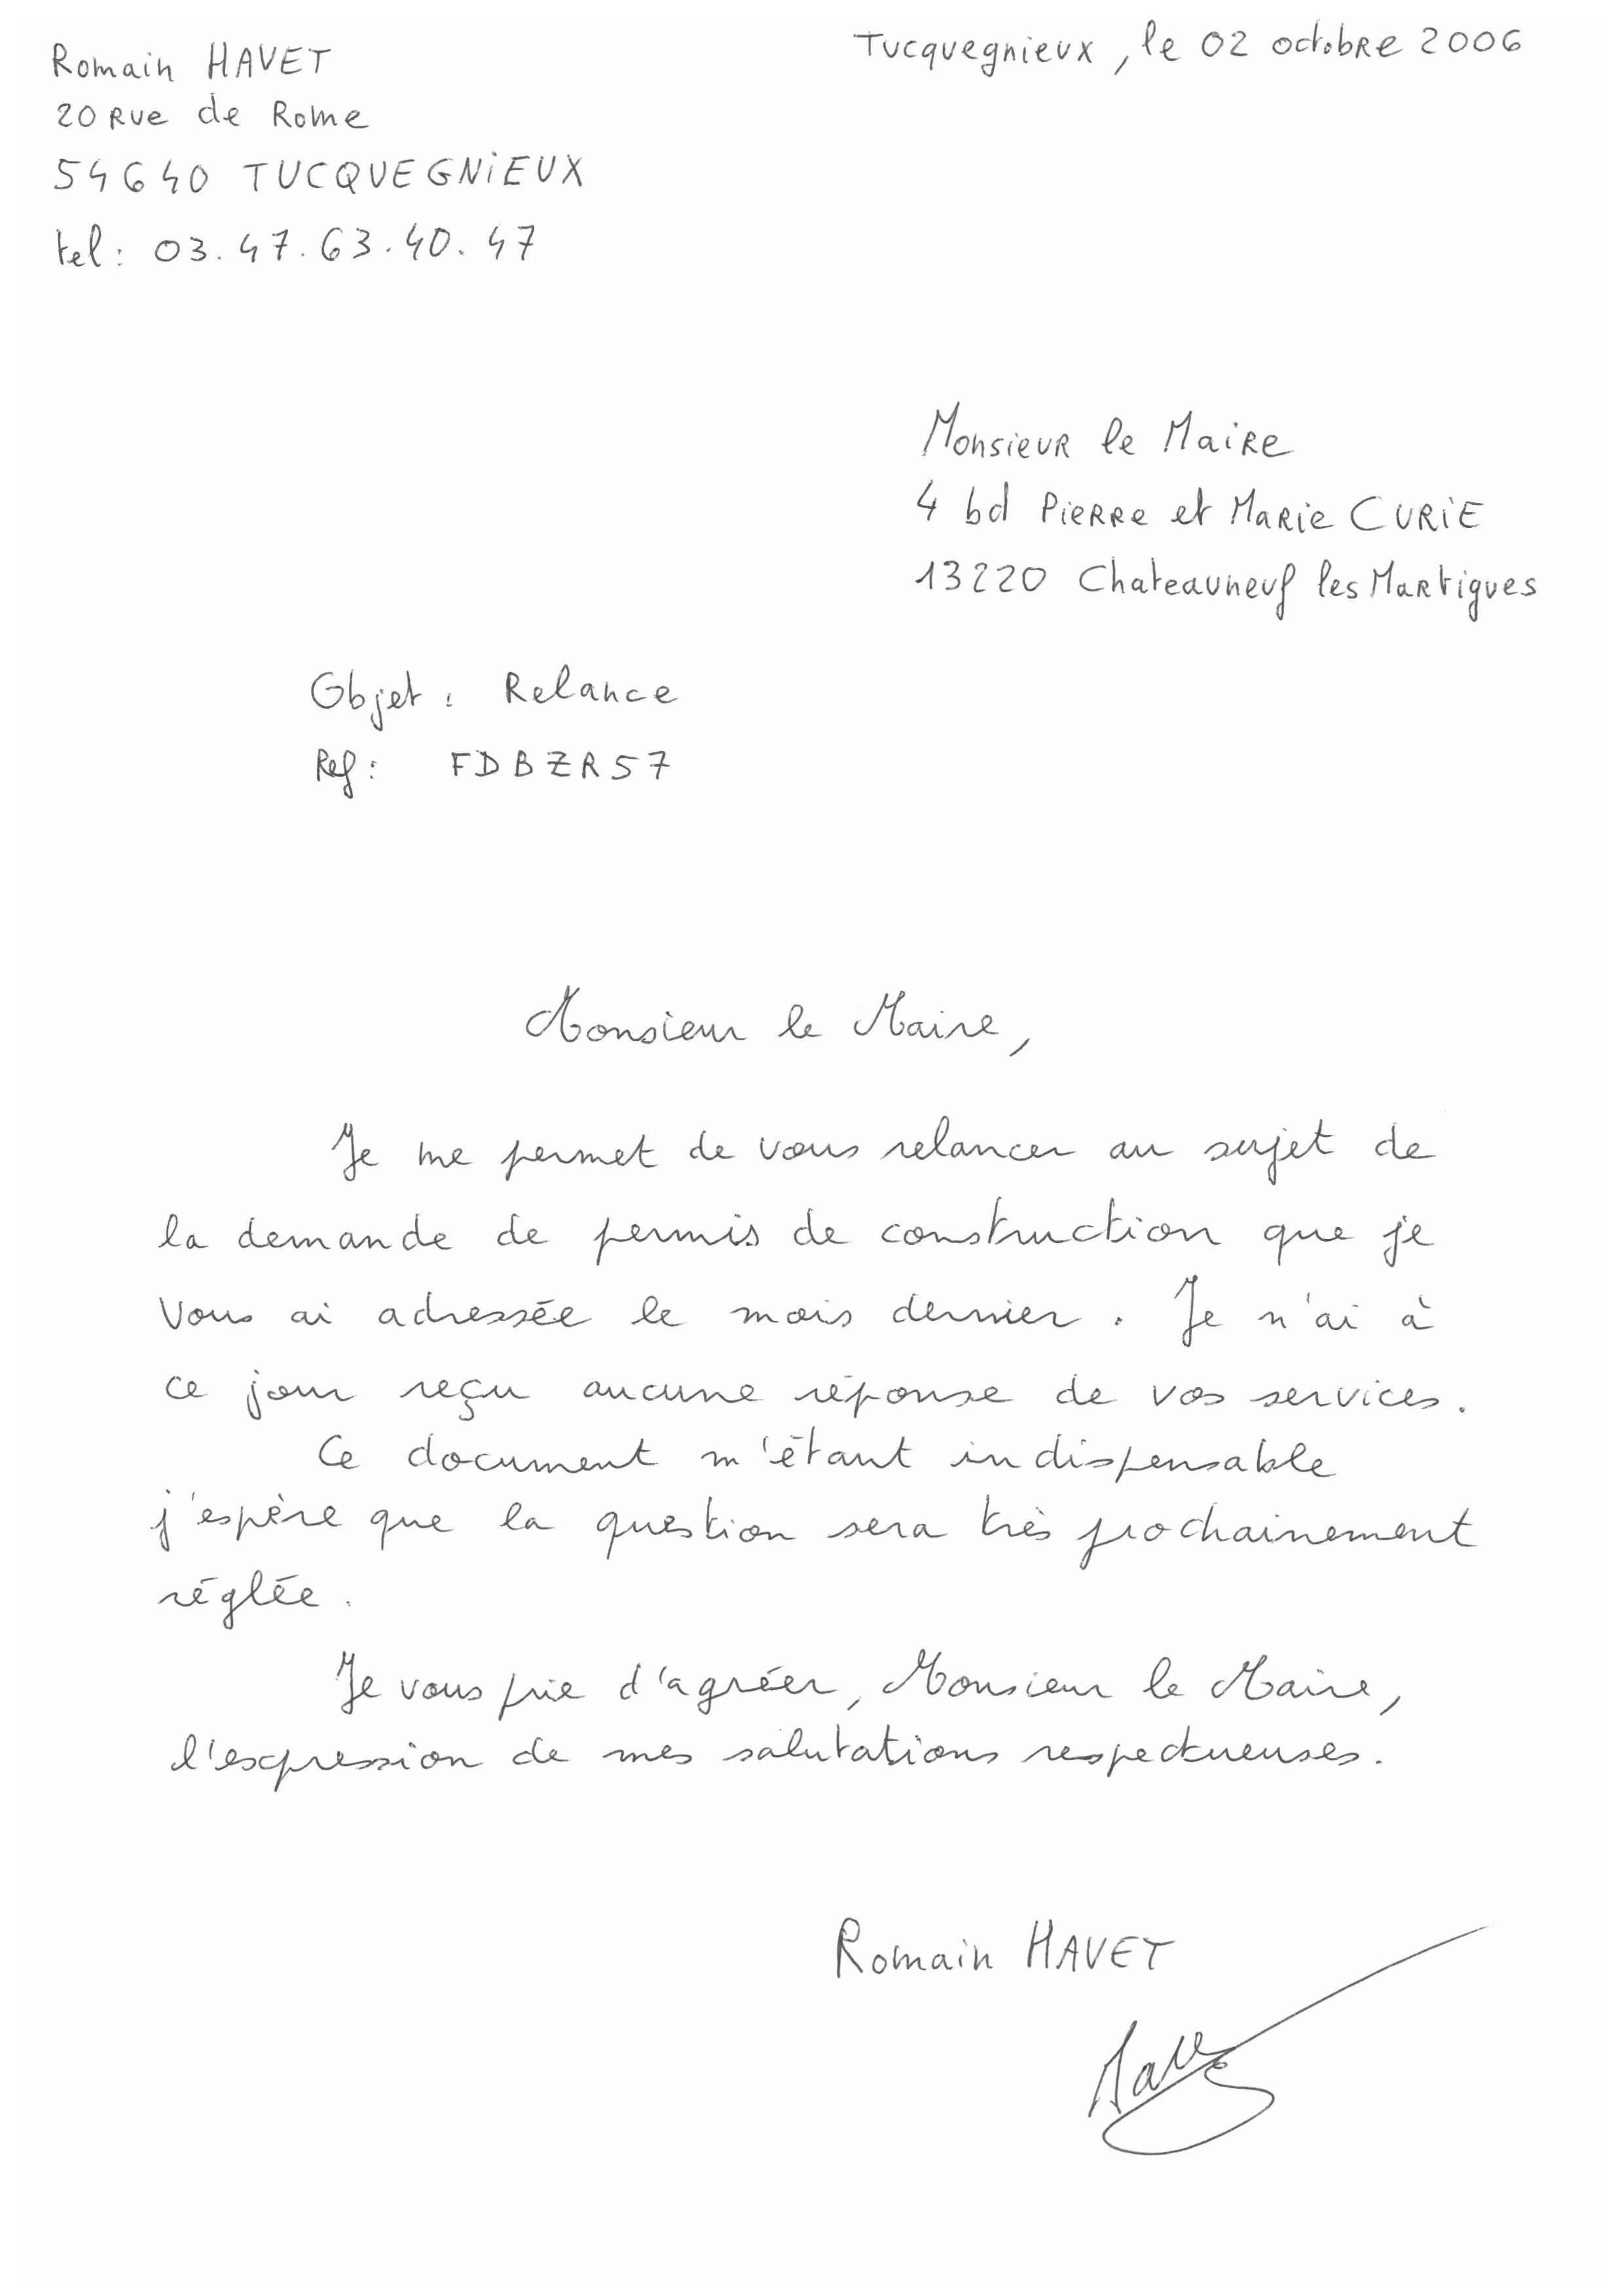 Romain HAVET
20 Rue de Rome
54640 TUCQUEGNiEUX
tel: 03.47.63.40.47
Tucquegnieux, le 02 octobre 2006
Monsieur le Maire
4 bd Pierre et Marie CURiE
13220 Chateauneuf les Martigues
Objet : Relance
Ref: FDBZR57
Monsieur le Maire,
Je me permet de vous relancer au sujet de
la demande de permis de construction que je
vous ai adressée le mois dernier. Je n'ai à
ce jour reçu aucune réponse de vos services.
Ce document m'étant indispensable
j'espère que la question sera très prochainement
réglée.
Je vous prie d'agréer, Monsieur le Maire,
l'expression de mes salutations respectueuses.
Romain HAVET